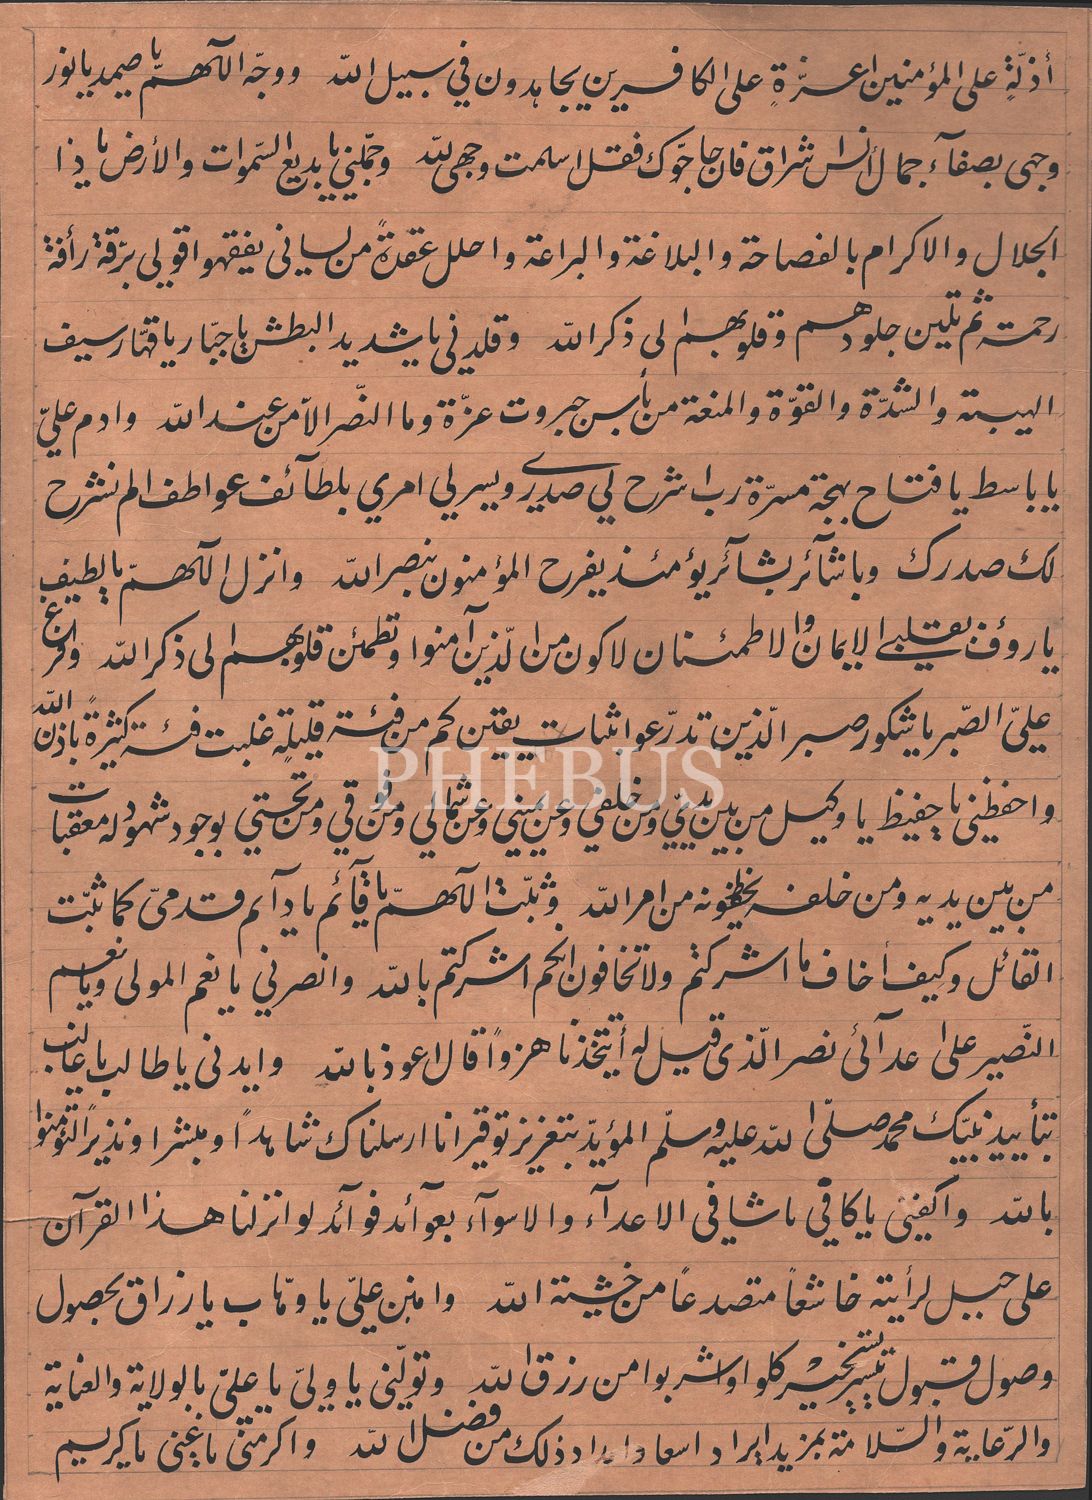 أذلّةٍ على المؤمنين اعزّةٍ على الكافرين يجاهدون في سبيل الله ووجّه اللّهمّ يا صمد يا نور
وجهى بصفآء جمال أنس اشراق فان حاجّوك فقل اسلمت وجهى لله وجمّلني يا بديع السّموات والأرض يا ذا
الجلال والاكرام بالفصاحة والبلاغة والبراعة واحلل عقدةً من لساني يفقهوا قولي برّقة رأفة
رحمة ثم تلين جلودهم وقلوبهم الى ذكر الله وقلدني يا شديد البطش يا جبّار يا قهّار سيف
الهيبة والشدّة والقوّة والمنعة من بأس جبروت عزّة وما النّصر الاّ من عند الله وادم عليّ
يا باسط يا فتاح بهجة مسرّة رب اشرح لي صدري ويسر لي امري بلطآئف عواطف الم نشرح
لك صدرك وباشآئر بشآئر يؤمئذ يفرح المؤمنون بنصر الله وانزل اللّهمّ يا لطيف
يا روؤف بقلبي الايمان والاطمئنان لاكون من الّذين آمنوا وتطمئن قلوبهم الى ذكر الله وافرغ
عليّ الصّبر يا شكور صبر الّذين تدرّعوا بثبات يقين كم من فئة قليلةٍ غلبت فئة كثيرةً باذن الله
واحفظني يا حفيظ يا وكيل من بين يديّ ومن خلفي وعن يميني وعن شمالي ومن فوقي ومن تحتي بوجود شهود له معقبات
من بين يديه ومن خلفه يحفظونه من امر الله وثبّت اللّهمّ يا قآئم يا دآئم قدميّ كما ثبّت
القائل وكيف أخاف ما اشركتم ولا تخافون انكم اشركتم بالله وانصرني يا نعم المولى ويا نعم
النّصير على اعدآئي نصر الّذى قيل له أتتّخذنا هزوًا قال اعوذ بالله وايدنى يا طالب يا غالب
بتأييد نبيّك محمد صلّى الله عليه وسلّم المؤيدّ بتعزيز توقير انا ارسلناك شاهدًا ومبشرا ونذيرًا لتؤمنوا
بالله واكفني يا كافي يا شافي الاعدآء والاسوآء بعوآئد فوآئد لو انزلنا هذا القرآن
على جبل لرأيته خاشعاً متصدعًا من خشية الله وامنن عليّ يا وهّاب يا رزاق بحصول
وصول قبول تيسير تسخير كلوا واشربوا من رزق الله وتولّني يا وليّ يا عليّ بالولاية والعناية
والرّعاية والسّلامة بمزيد ايراد اسعاد امداد ذلك من فضل الله واكرمني يا غني يا كريم
PHEBUS